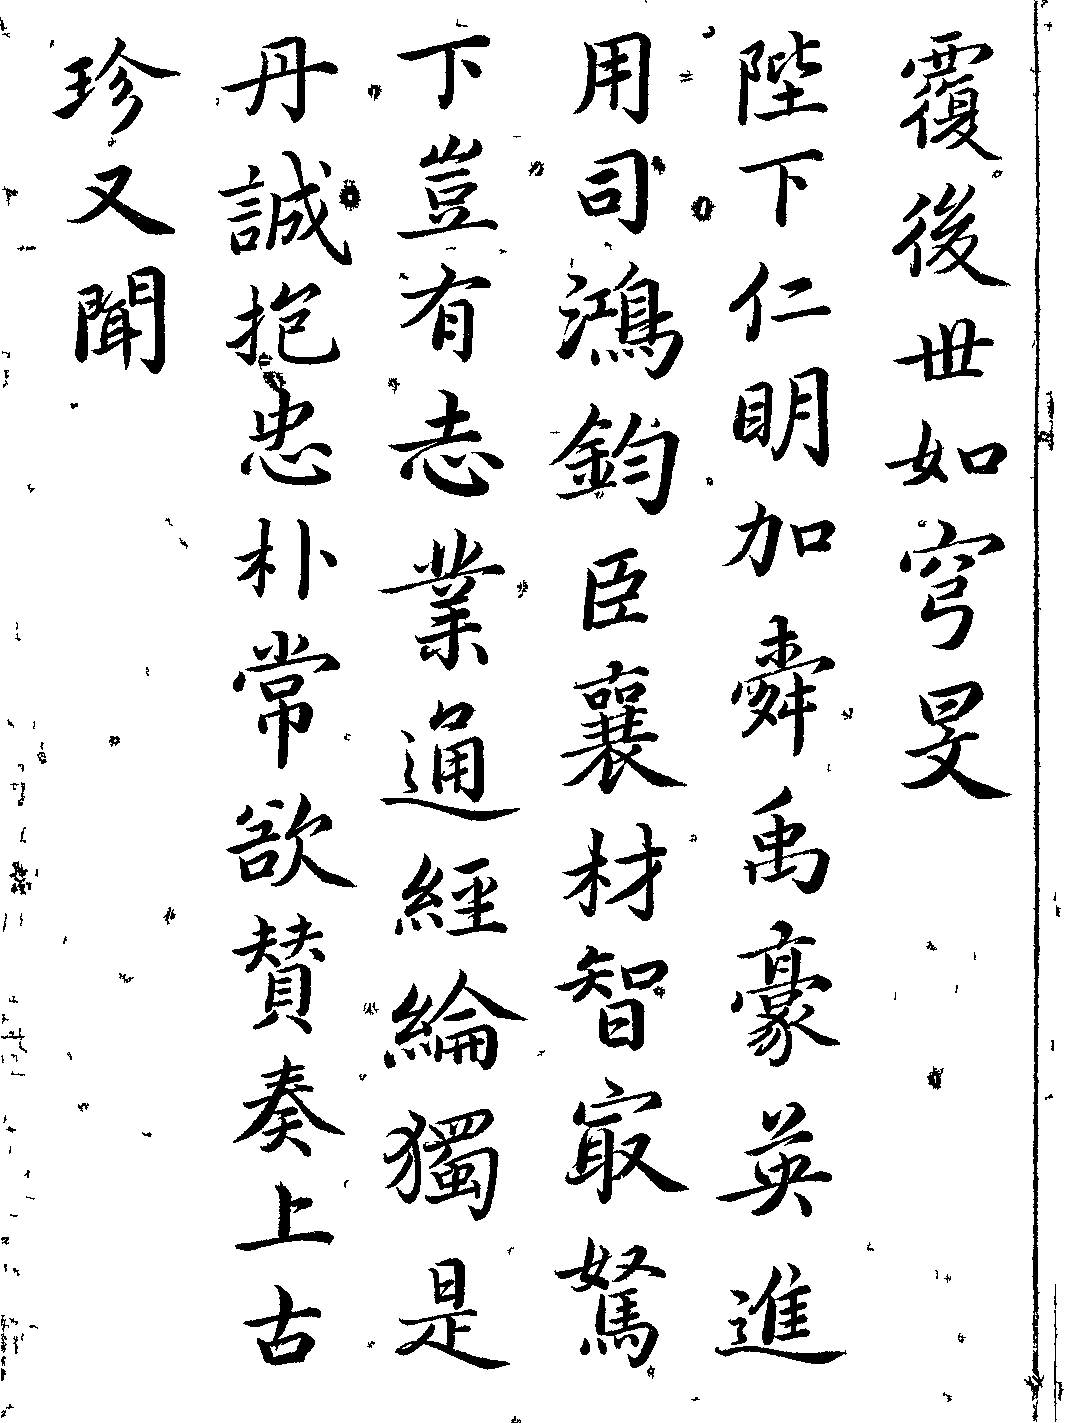 覆後世如穹旻
陛下仁明加舜禹豪英進
用司鴻鈞臣襄材智㝡駑
下豈有志業通經綸獨是
丹誠抱忠朴常欲贊奏上古
珍又聞